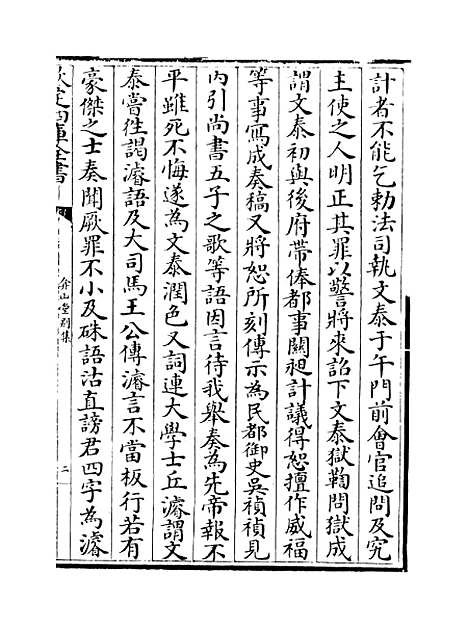 計者不能乞勅法司執文泰于午門前會官追問及究
主使之人明正其罪以警將來詔下文泰獄鞫問獄成
謂文泰初與後府帶俸都事閻昶計議得恕擅作威福
等事寫成奏稿又將恕所刻傳示為民都御史吳禎禎見
内引尚書五子之歌等語因言待我舉奏為先帝報不
平雖死不悔遂為文泰潤色又詞連大學士丘濬謂文
泰嘗徃謁濬語及大司馬王公傳濬言不當板行若有
豪傑之士奏聞厥罪不小及硃語沽直謗君四字為濬
欽定四庫全書
弇山堂别集
二